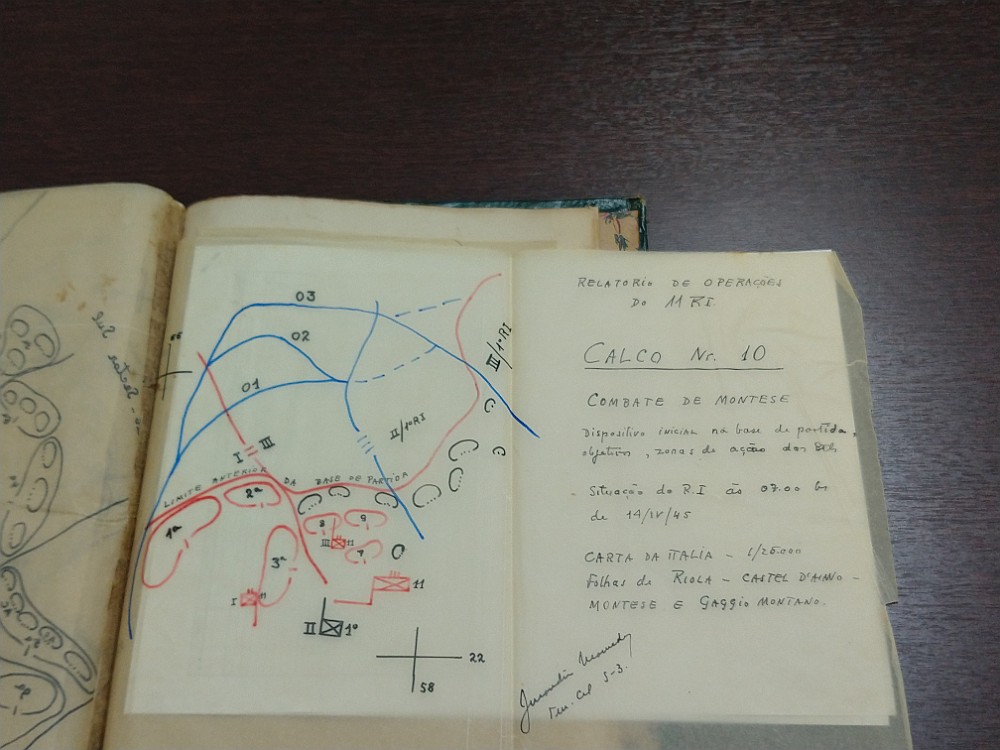 03
02
01
III/1ºRI
II/1ºRI
I
III
LIMITE ANTERIOR DA BASE DE PARTIDA
1ª
2ª
3ª
8
9
7
III 11
I 11
11
II 1º
22
58
RELATORIO DE OPERAÇÕES
DO 11 RI.
CALCO Nr. 10
COMBATE DE MONTESE
Dispositivo inicial na base de partida,
objetivos, zonas de ação dos
Situação do R.I às 09.00 hs
de 14/IV/45
CARTA DA ITALIA - 1/25.000
Folhas de RIOLA - CASTEL D'AIANO -
MONTESE E GAGGIO MONTANO.
Ten. Cel S-3.